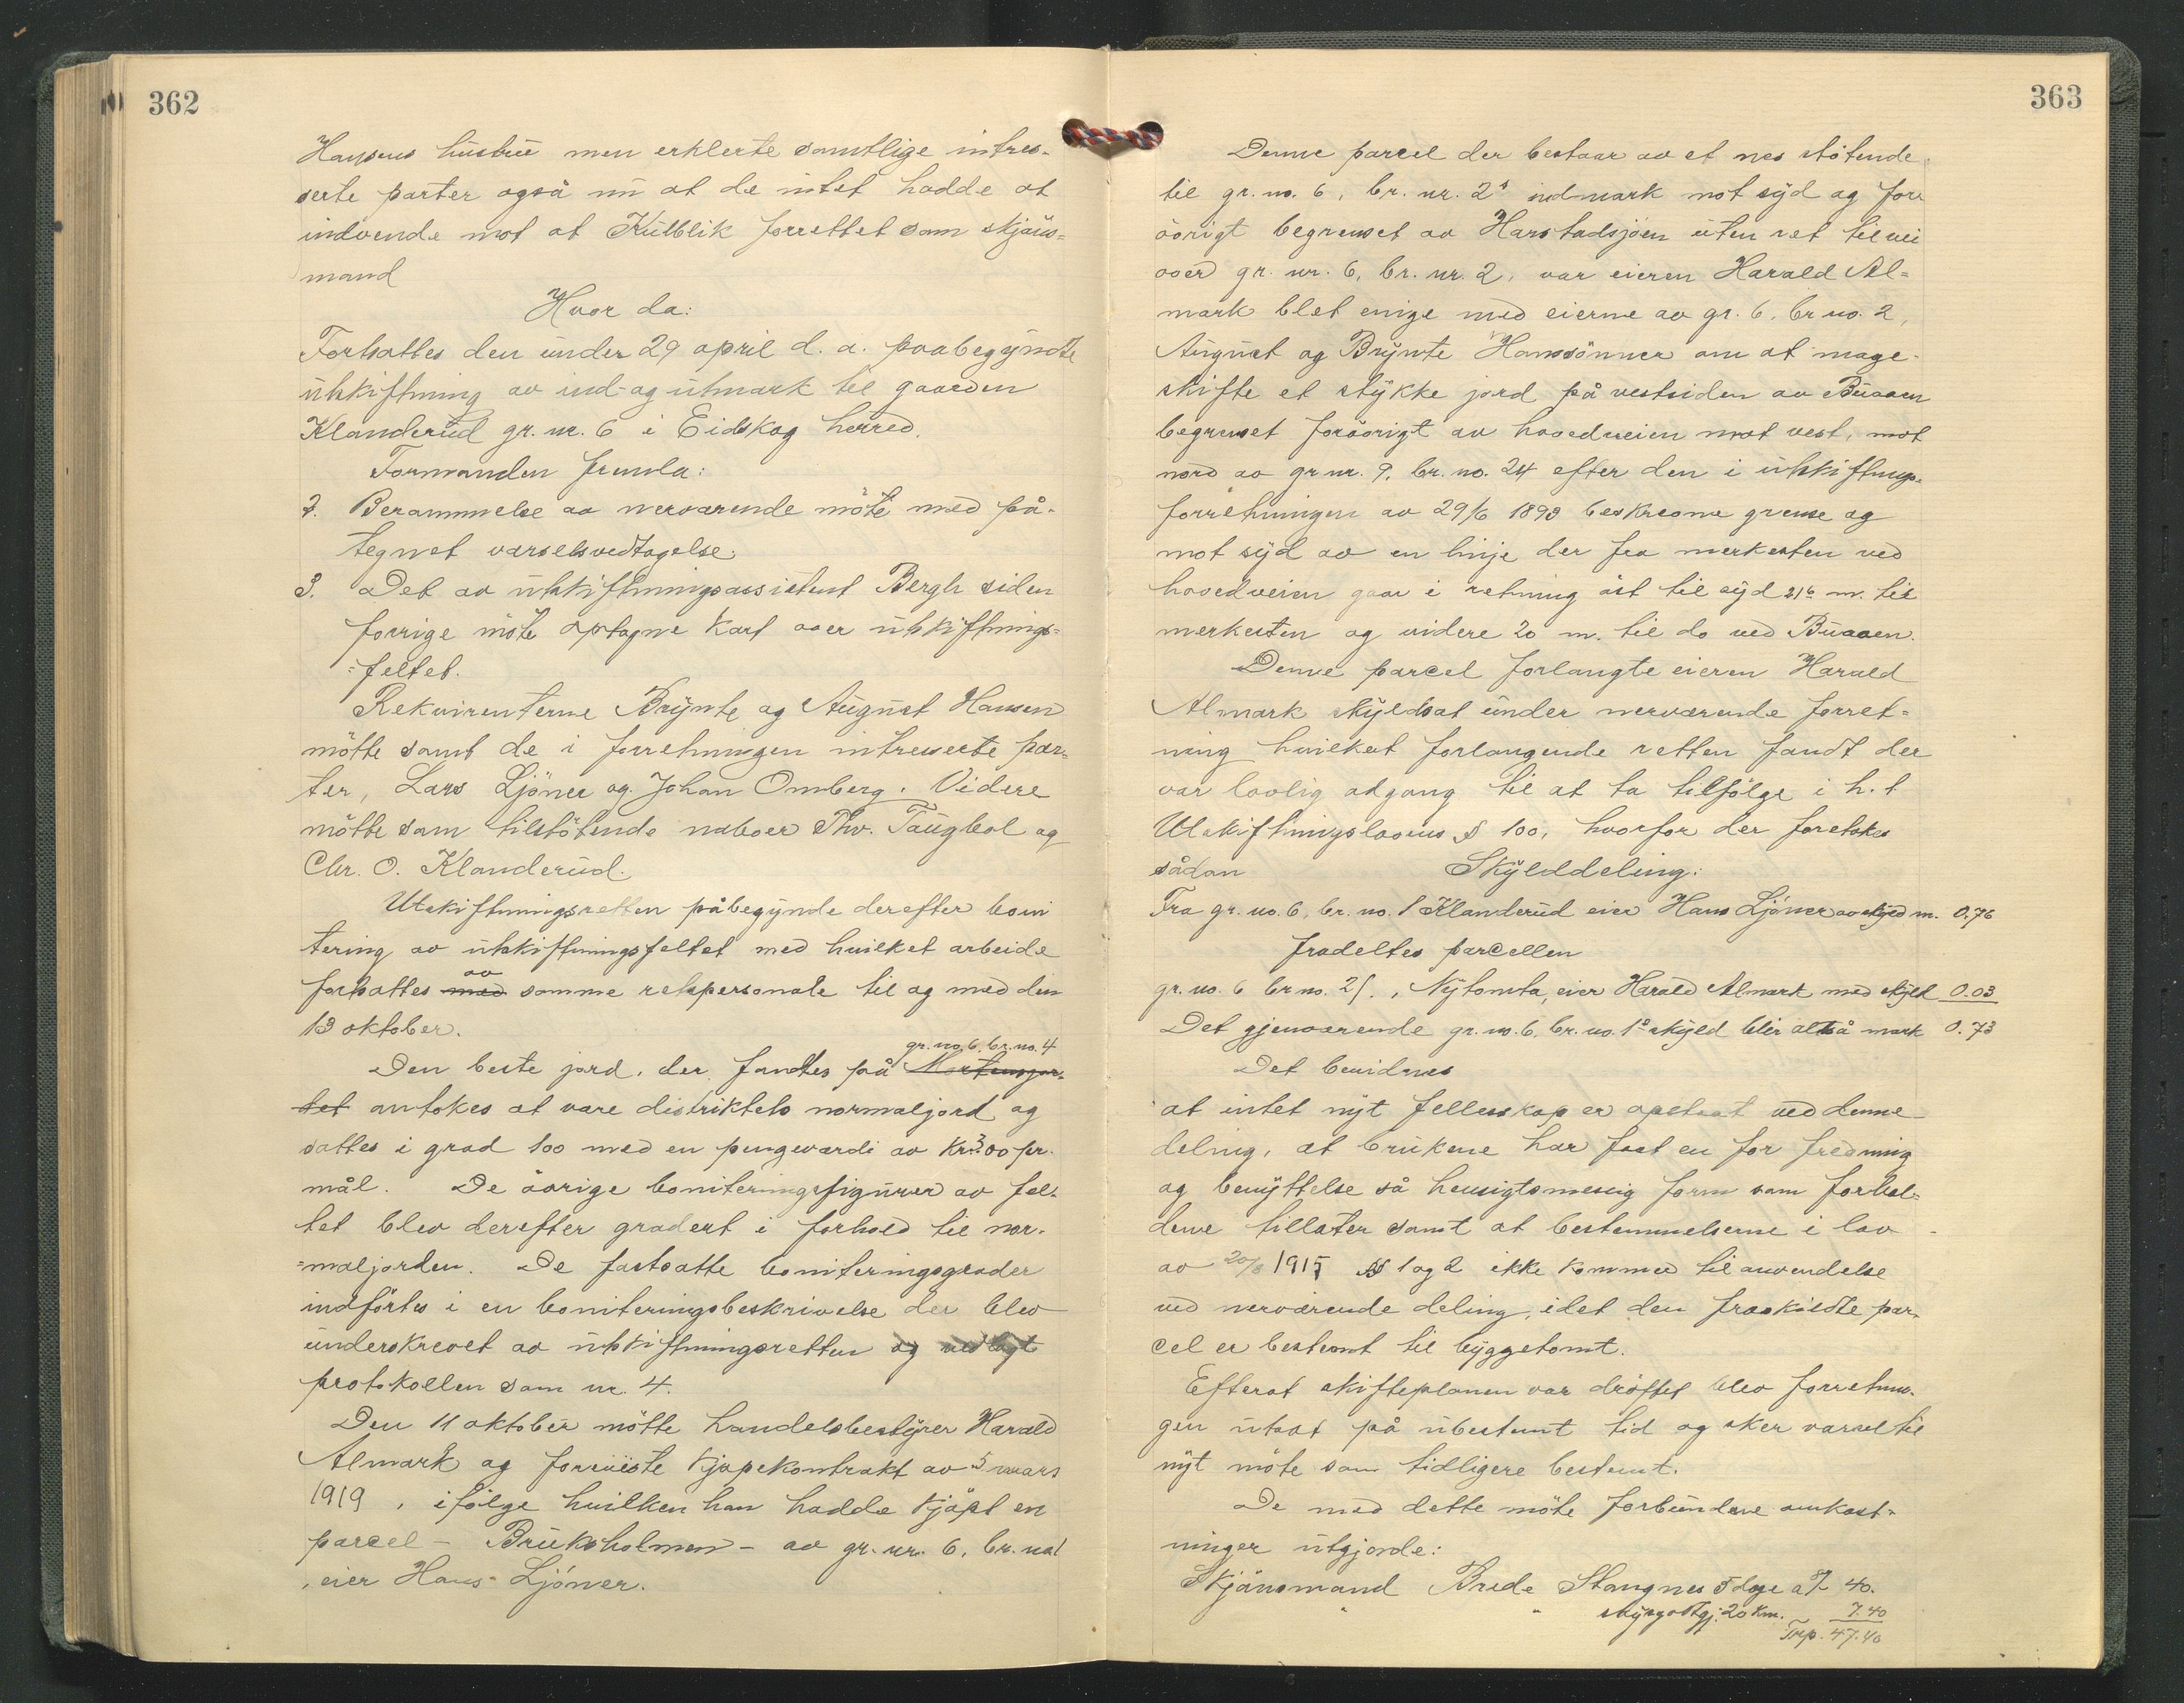 362
Hansens hustru men erklerte samtlige intres-
serte parter også nu at de intet hadde at
indvende mot at Kulblik forrettet som skjöns-
mand
Hvor da:
Fortsattes den under 29 april d. a. paabegyndte
utskiftning av ind- og utmark til gaarden
Klanderud gr. nr. 6 i Eidskog herred.
Formanden fremla:
2. Berammelse av nerværende möte med på-
tegnet varselsvedtagelse.
3. Det av utskiftningsassistent Bergh siden
forrige möte optagne kart over utskiftnings-
=feltet.
Rekvirenterne Brynte og August Hansen
mötte samt de i forretningen intresserte par-
ter, Lars Ljöner og Johan Omberg. Videre
mötte som tilstötende naboer Thv. Taugbol og
Chr. O. Klanderud.
Utskiftningsretten påbegynde derefter boni
tering av utskiftningsfeltet med hvilket arbeide
fortsattes med av samme retspersonale til og med den
13 oktober.
gr. no. 6. br. no. 4
Den beste jord, der fandtes på
tet antokes at være distriktets normaljord og
sattes i grad 100 med en pengeværdi av Kr. 300 pr.
mål. De övrige boniteringsfigurer av fel-
tet blev derefter gradert i forhold til nor-
=maljorden. De fastsatte boniteringsgrader
indförtes i en boniteringsbeskrivelse der blev
underskrevet av utskiftningsretten og vedlagt
protokollen som nr. 4.
Den 11 oktober mötte handelsbestyrer Harald
Almark og foreviste kjöpekontrakt av 5 mars
1919, ifölge hvilken han hadde kjöpt en
parcel - Bruksholmen - av gr. nr. 6, br. no 1
, eier Hans Ljöner.
363
Denne parcel der bestaar av et nes stötende
til gr. no. 6, br. nr. 2s indmark mot syd og for
övrigt begrenset av Harstadsjöen uten ret til vei
over gr. nr. 6, br. nr. 2, var eieren Harald Al-
mark blet enige med eierne av gr. 6, br no. 2,
August og Brynte Hanssönner om at mage-
skifte et stykke jord på vestsiden av Buaaen
begrenset forövrigt av hovedveien mot vest, mot
nord av gr nr. 9, br. no. 24 efter den i utskiftnings-
forretningen av 29/6 1898 beskrevne grense og
mot syd av en linje der fra merkesten ved
hovedveien gaar i retning öst til syd 216 m. til
merkesten og videre 20 m. til do ved Buaaen.
Denne parcel forlangte eieren Harald
Almark skyldsat under nerværende forret-
ning hvilket forlangende retten fandt der
var lovlig adgang til at ta tilfölge i h. t
Utskiftningslovens § 100, hvorfor der foretokes
sådan Skylddeling:
Fra gr. no. 6, br. no. 1 Klanderud eier Hans Ljöner av skyld m. 0.76
fradeltes parcellen
gr. no. 6 br no. 21., Nytomta, eier Harald Almark med skyld 0.03
Det gjenværende gr. no. 6. br. no. 1s skyld blir altså mark 0.73
Det bevidnes
at intet nyt fellesskap er opstaat ved denne
deling, at brukene har faat en for fredning
og benyttelse så hensigtsmessig form som forhol-
dene tillater samt at bestemmelserne i lov
av 20/8 1915 §§ 1 og 2 ikke kommer til anvendelse
ved nerværende deling, idet den fraskildte par-
cel er bestemt til byggetomt.
Efterat skifteplanen var dröftet blev forretnin-
gen utsat på ubestemt tid og sker varsel til
nyt möte som tidligere bestemt.
De med dette möte forbundne omkost-
ninger utgjorde:
Skjönsmand Brede Stangnes 5 dage a 8/- 40.
" " skysgodtgj. 20 km. 7.40
Trp. 47.40